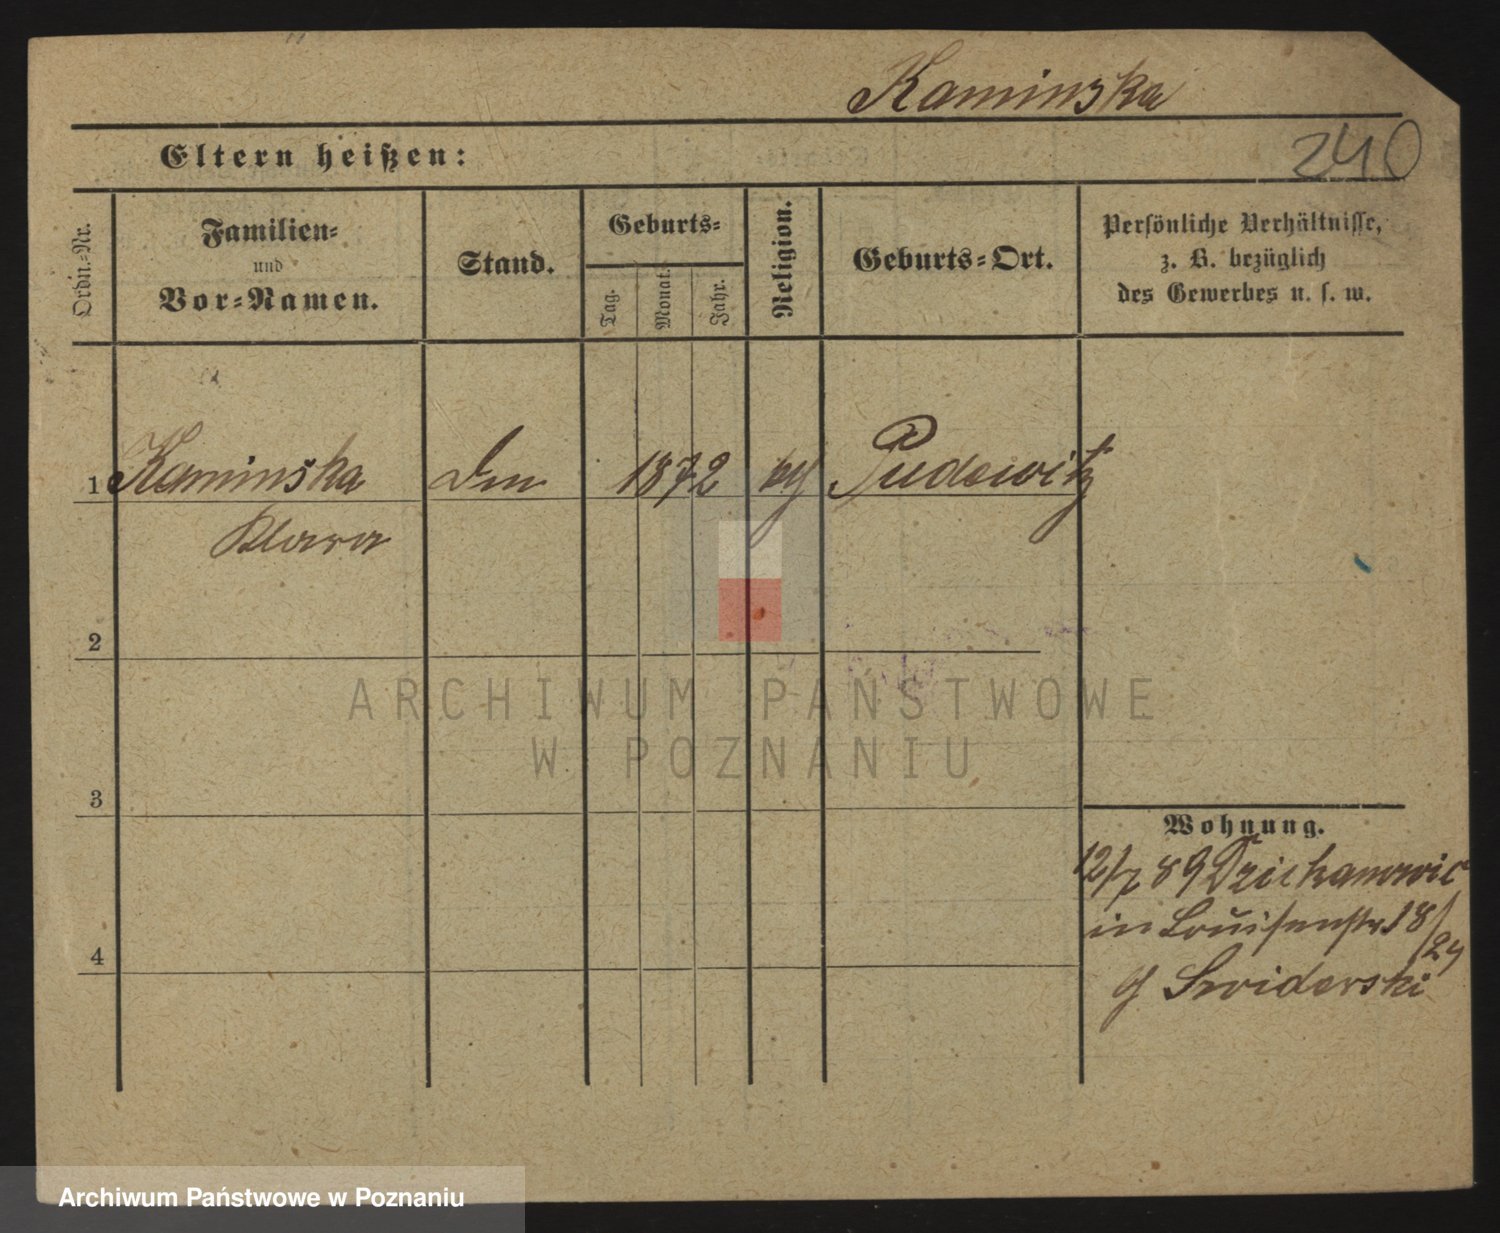 Kaminska
240
Eltern heißen:
Ordn.-Nr.
Familien-
und
Vor-Namen.
Stand.
Geburts-
Tag.
Monat.
Jahr.
Religion.
Geburts-Ort.
Persönliche Verhältnisse,
z. B. bezüglich
des Gewerbes u. s. w.
1 Kaminska 1872 Pudewitz
Klara
2
ARCHIWUM PAŃSTWOWE
W POZNANIU
3
Wohnung.
12/7 89 Dziekanowic
in Louisenstr. 18/24
4
Swiderski
Archiwum Państwowe w Poznaniu